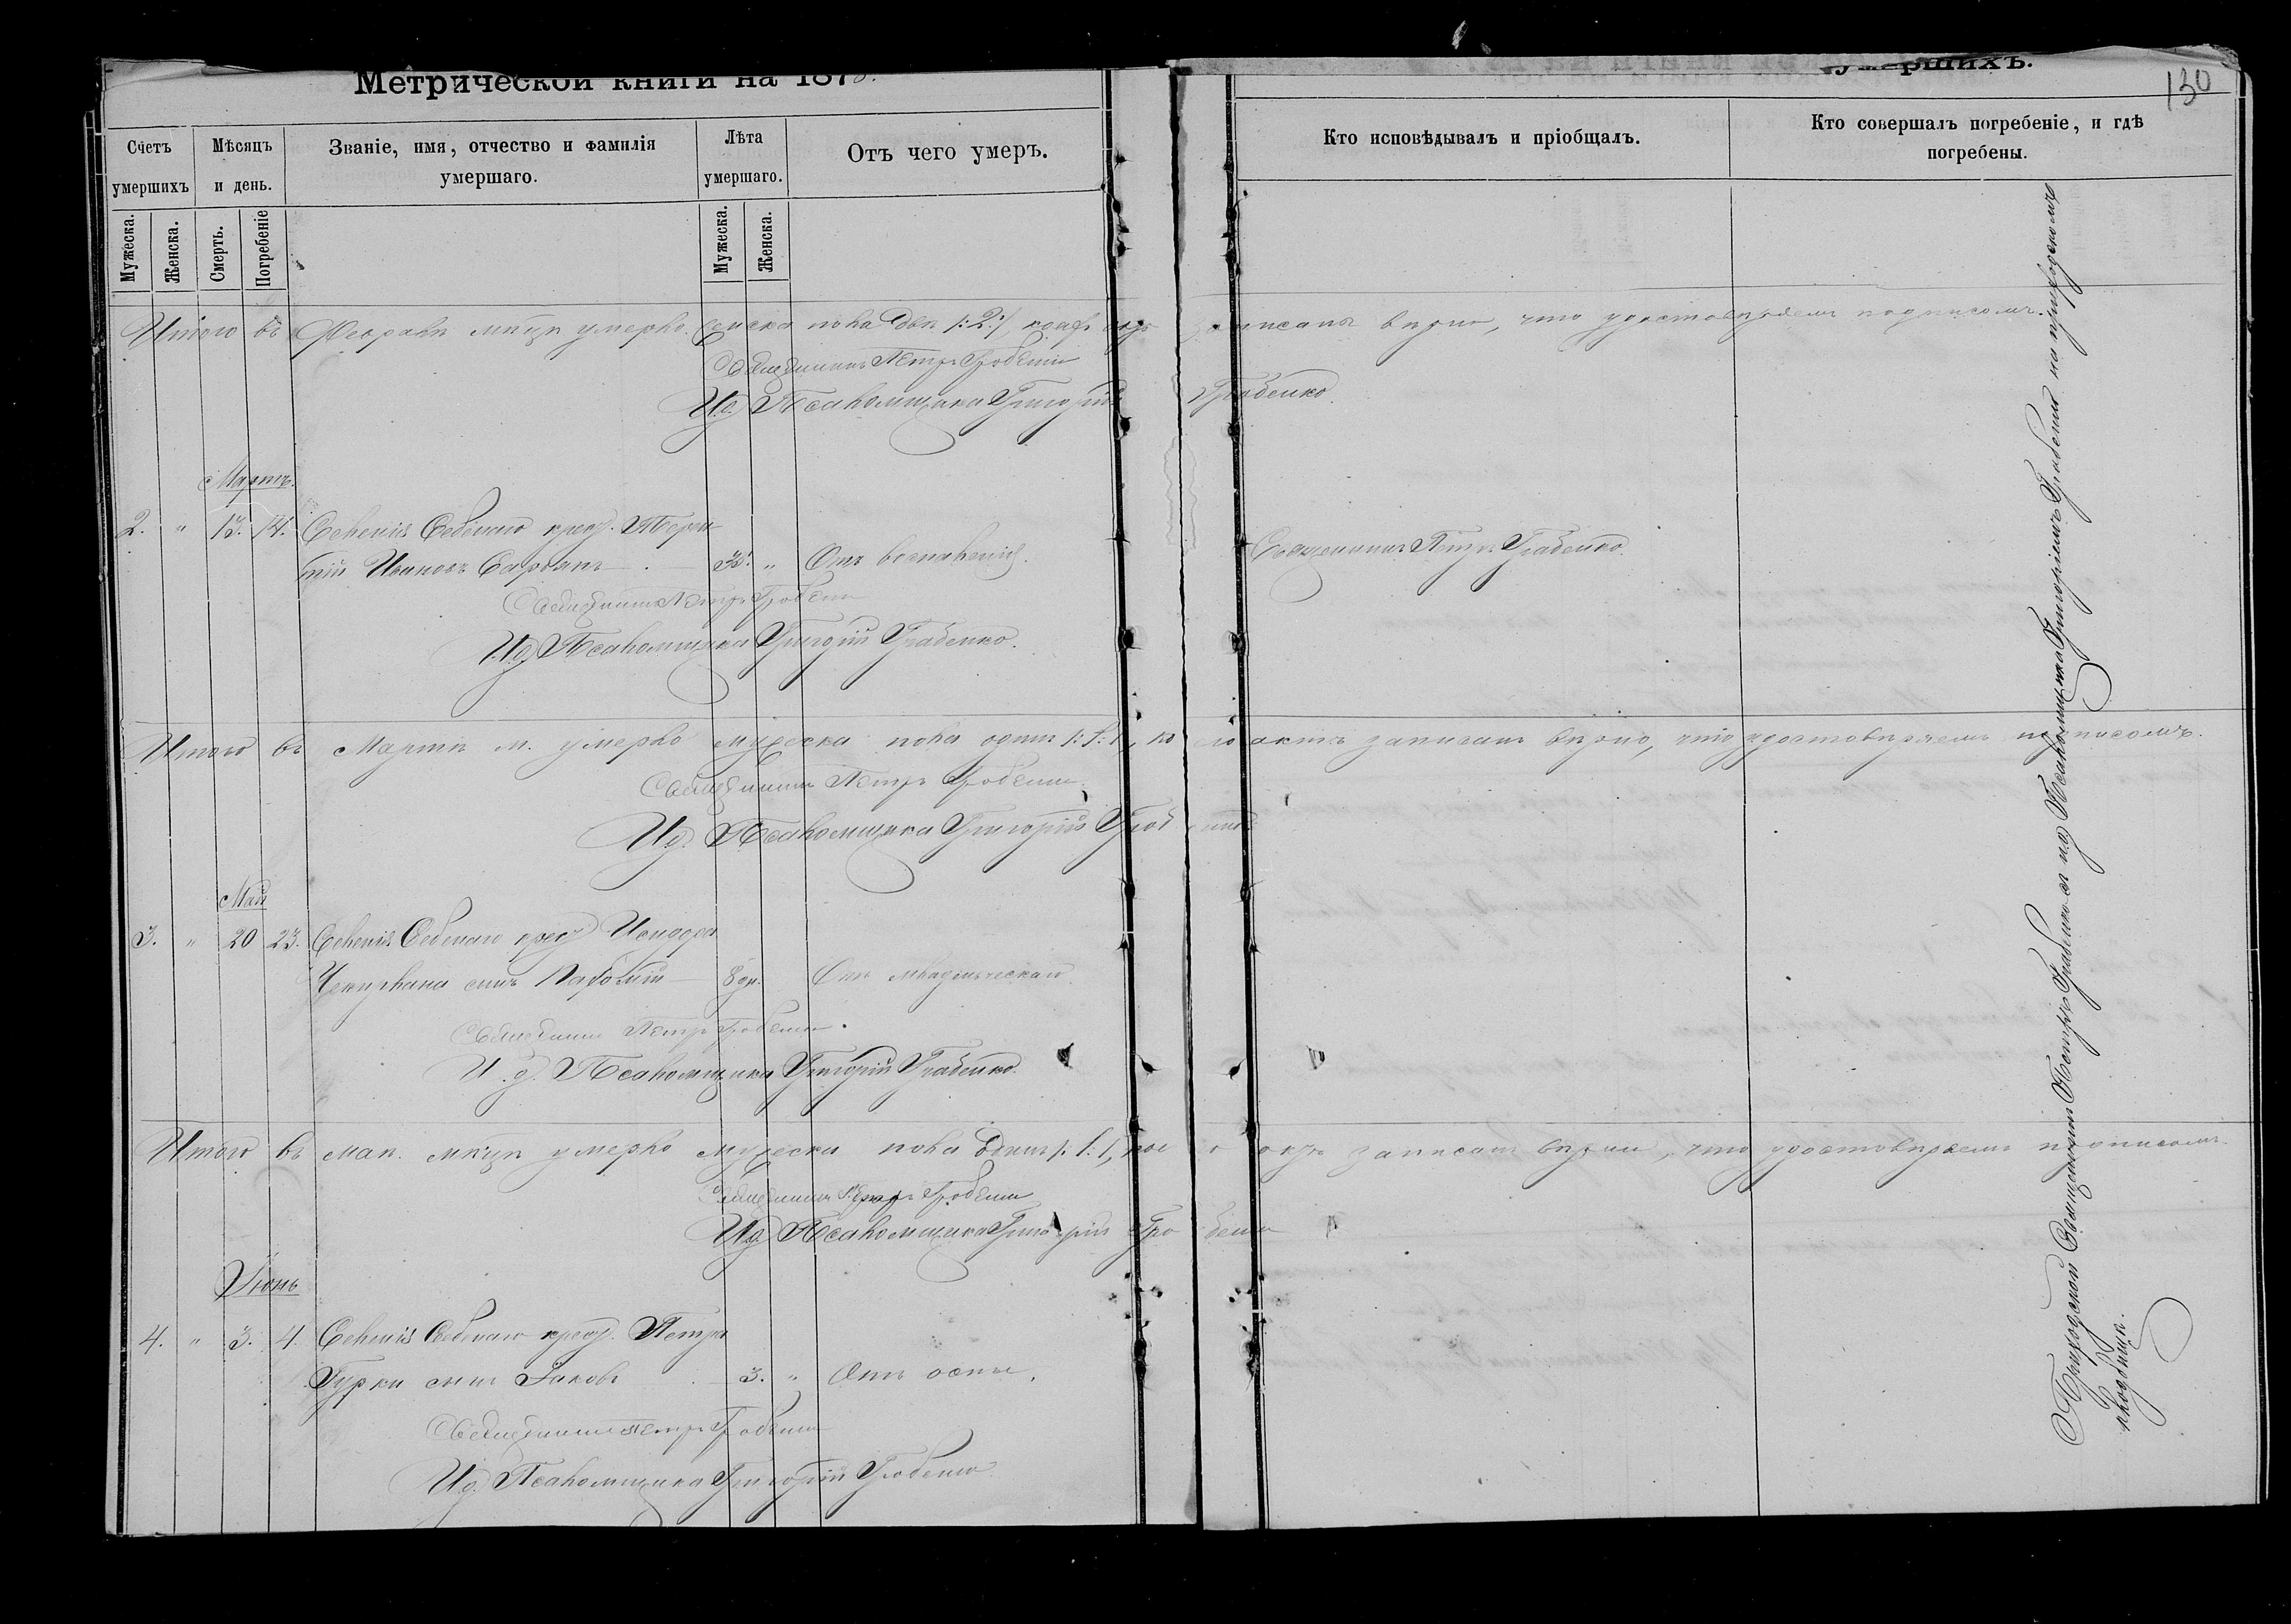 Метрической книги на 187
умершихъ.
130
Счетъ умершихъ
Мѣсяцъ и день.
Званіе, имя, отчество и фамилія умершаго.
Лѣта умершаго.
Отъ чего умеръ.
Кто исповѣдывалъ и пріобщалъ.
Кто совершалъ погребеніе, и гдѣ погребены.
Мужеска.
Женска.
Смерть.
Погребеніе
Мужеска.
Женска.
Итого въ Февралѣ мѣцѣ умерло женска пола двѣ /:2:/, записаны вѣрно, что удостовѣряемъ подписомъ.
Священникъ Петръ Грабенко
И.д. Псаломщика Григорій Грабенко.
Мартъ.
2. " 13. 14. Селенія крест.
Ивановъ 35. " Отъ воспаленія.
Священникъ Петръ Грабенко.
Священникъ Петръ Грабенко
И.д. Псаломщика Григорій Грабенко.
Итого въ Мартѣ м. умерло мужеска пола одинъ /:1:/, актъ записанъ вѣрно, что удостовѣряемъ подписомъ.
Священникъ Петръ Грабенко
И.д. Псаломщика Григорій Грабенко
Май
3. " 20 23. Селенія крест. Исидора
сынъ 8 дн. Отъ младенческаго.
Священникъ Петръ Грабенко.
И.д. Псаломщика Григорій Грабенко.
Итого въ маѣ мѣцѣ умерло мужеска пола одинъ /:1:/, актъ записанъ вѣрно, что удостовѣряемъ подписомъ.
Священникъ Петръ Грабенко
И.д. Псаломщика Григорій Грабенко
Іюнь
4. " 3. 4. Селенія крест. Петра
Гурки сынъ Іаковъ 3. " Отъ оспы.
Священникъ Петръ Грабенко
И.д. Псаломщика Григорій Грабенко
Приходской Священникъ Петръ Грабенко съ и.д. Псаломщика Григоріемъ Грабенко на приходскомъ
кладбищѣ.